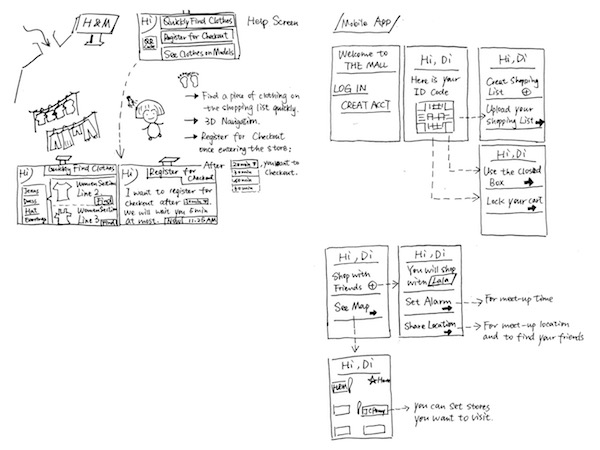 H&M
Hi
Quickly Find Clothes
Register for Checkout
See Clothes on Models
QR
Code
Help Screen
→ Find a piece of clothing on
the shopping list quickly.
→ 3D Navigation.
→ Register for Checkout
once entering the store:
After 20 min, you want to
checkout.
Hi
Quickly Find Clothes
Jeans
Dress
Hat
Women Section
Line 2
Find
Women Section
Line 3
Find
Hi
Register for
Checkout
I want to register for
checkout after
We will wait you 5 min
at most.
Now! 11:25 AM
Mobile App
Welcome to
THE MALL
LOG IN
CREAT ACCT
Hi, Di
Here is your
ID Code
Hi, Di
Creat Shopping
List
Upload your
shopping List
Hi, Di
Use the Closed
Box
Lock your cart
Hi, Di
Shop with
Friends
See Map
Hi, Di
You will shop
with Lala
Set Alarm
Share Location
For meet-up time
For meet-up location
and to find your friends
Hi, Di
H&M
Home
you can set stores
you want to visit.